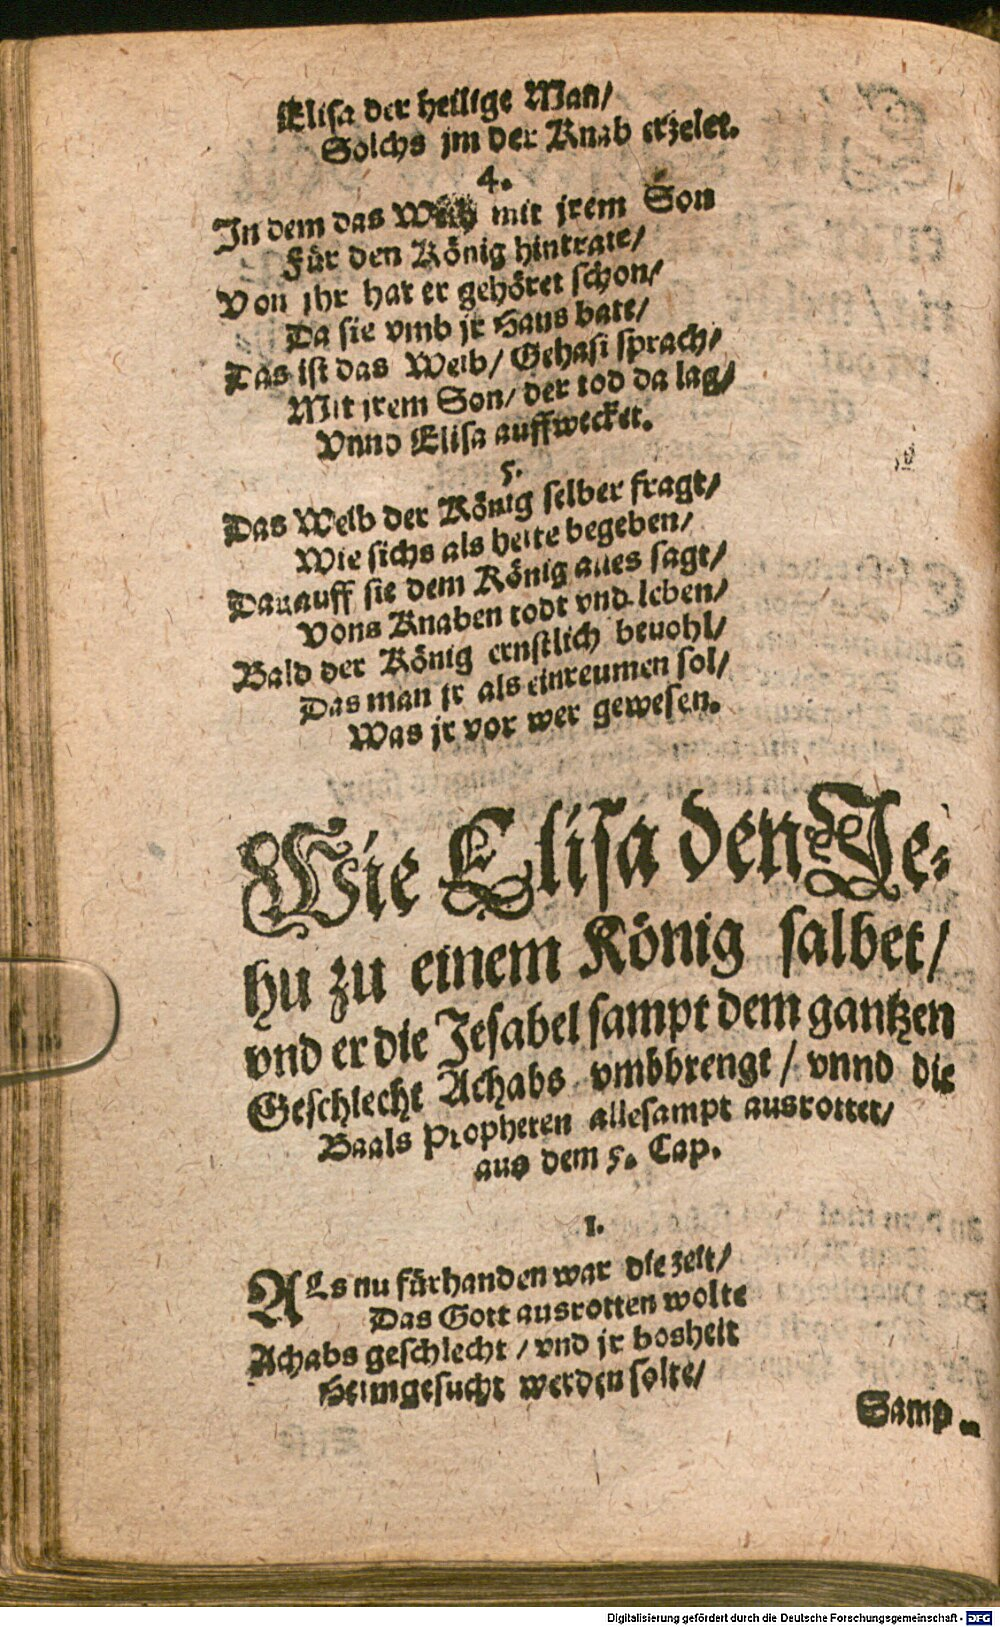 Elisa der heilige Man/
Solchs jm der Knab erzelet.
4.
In dem das Weib mit jrem Son
Für den König hintrate/
Von jhr hat er gehöret schon/
Da sie vmb jr Haus bate/
Das ist das Weib/ Gehasi sprach/
Mit jrem Son/ der tod da lag/
Vnnd Elisa auffwecket.
5.
Das Weib der König selber fragt/
Wie sichs als hette begeben/
Darauff sie dem König alles sagt/
Vons Knaben todt vnd leben/
Bald der König ernstlich beuohl/
Das man jr als einreumen sol/
Was jr vor wer gewesen.
Wie Elisa den Je-
hu zu einem König salbet/
vnd er die Jesabel sampt dem gantzen
Geschlecht Achabs vmbbrengt/ vnnd die
Baals Propheten allesampt ausrottet/
aus dem 5. Cap.
1.
ALs nu fürhanden war die zeit/
Das Gott ausrotten wolte
Achabs geschlecht/ vnd jr bosheit
Heimgesucht werden solte/
Samp-
Digitalisierung gefördert durch die Deutsche Forschungsgemeinschaft - DFG